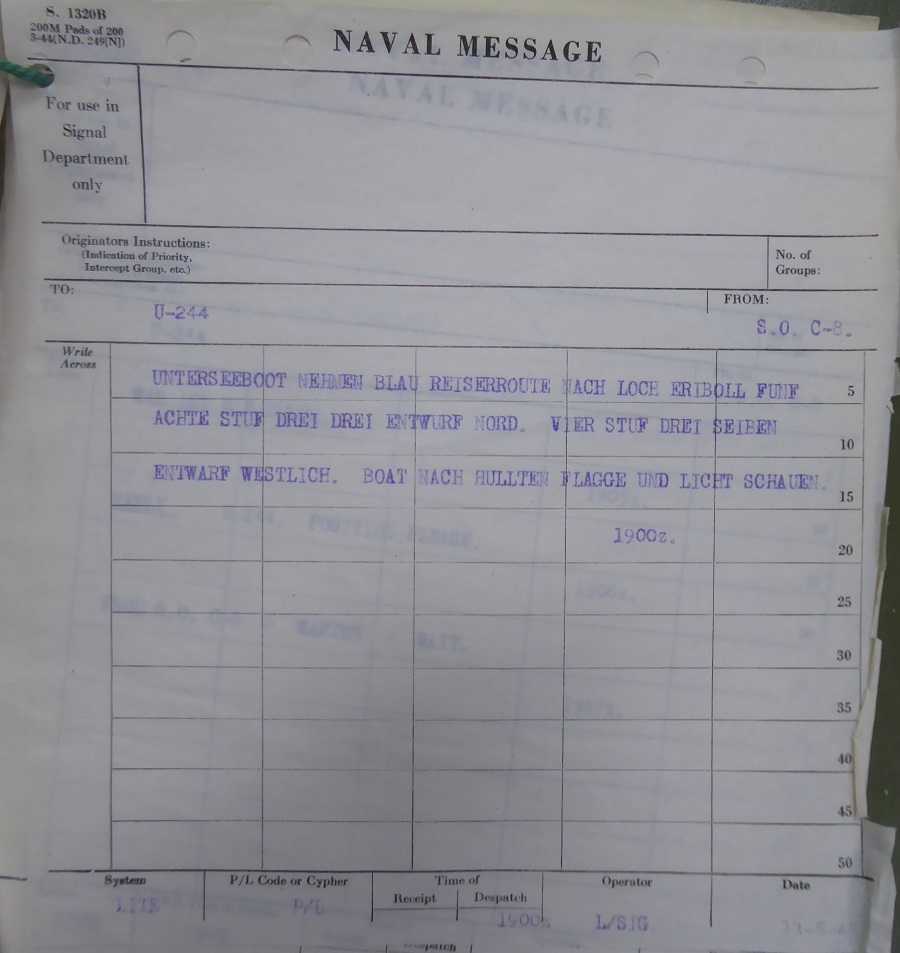 S. 1320B
200M Pads of 200
3-44(N.D. 249[N])
NAVAL MESSAGE
For use in
Signal
Department
only
Originators Instructions:
(Indication of Priority,
Intercept Group, etc.)
No. of
Groups:
TO:
U-244
FROM:
S.O. C-8.
Write
Across
UNTERSEEBOOT NEHMEN BLAU REISERROUTE NACH LOCH ERIBOLL FUNF
5
ACHTE STUF DREI DREI ENTWURF NORD. VIER STUF DREI SEIBEN
10
ENTWARF WESTLICH. BOAT NACH HULLTEN FLAGGE UND LICHT SCHAUEN.
15
1900z.
20
25
30
35
40
45
50
System
P/L Code or Cypher
Time of
Receipt
Despatch
Operator
Date
LITE
P/L
1900z
L/SIG